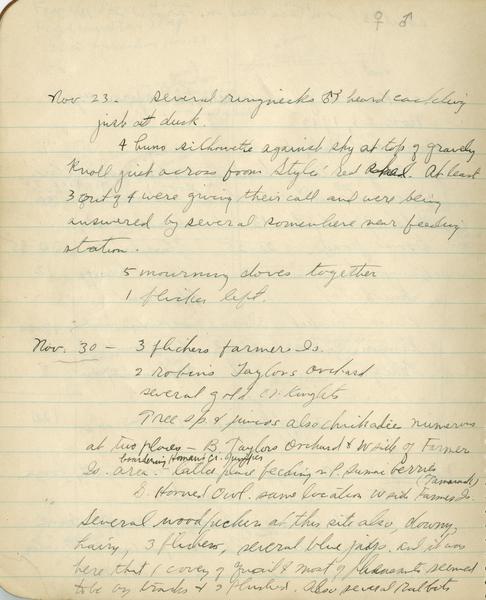 ♀ ♂
Nov. 23. Several ringnecks ♂♂ heard cackling
just at dusk.
4 huns silhouette against sky at top of gravely
Knoll just across from Styles' red shed. At least
3 out of 4 were giving their call and were being
answered by several somewhere near feeding
station.
5 mourning doves together
1 flicker left.
Nov. 30 - 3 flickers Farmers Is.
2 robins Taylors Orchard
several gold cr. Kinglets
Tree sp. & juncos also chickadies numerous
at two places - B. Taylors Orchard & W side of Farmer
bordering Homans Cr.
Is. area. - latter place feeding on P. Sumac berries
(Tamarack)
G. Horned Owl. same location W side Farmes Is.
Several woodpeckers at this site also, downy,
hairy, 3 flickers, several blue jays, and it was
here that 1 covey of quail & most of pheasants seemed
to be by tracks & 3 flushed. Also several Rabbits